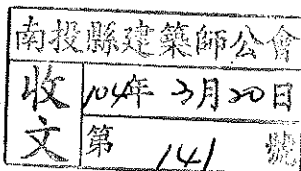 南投縣建築師公會
收文
104年3月20日
第 141 號